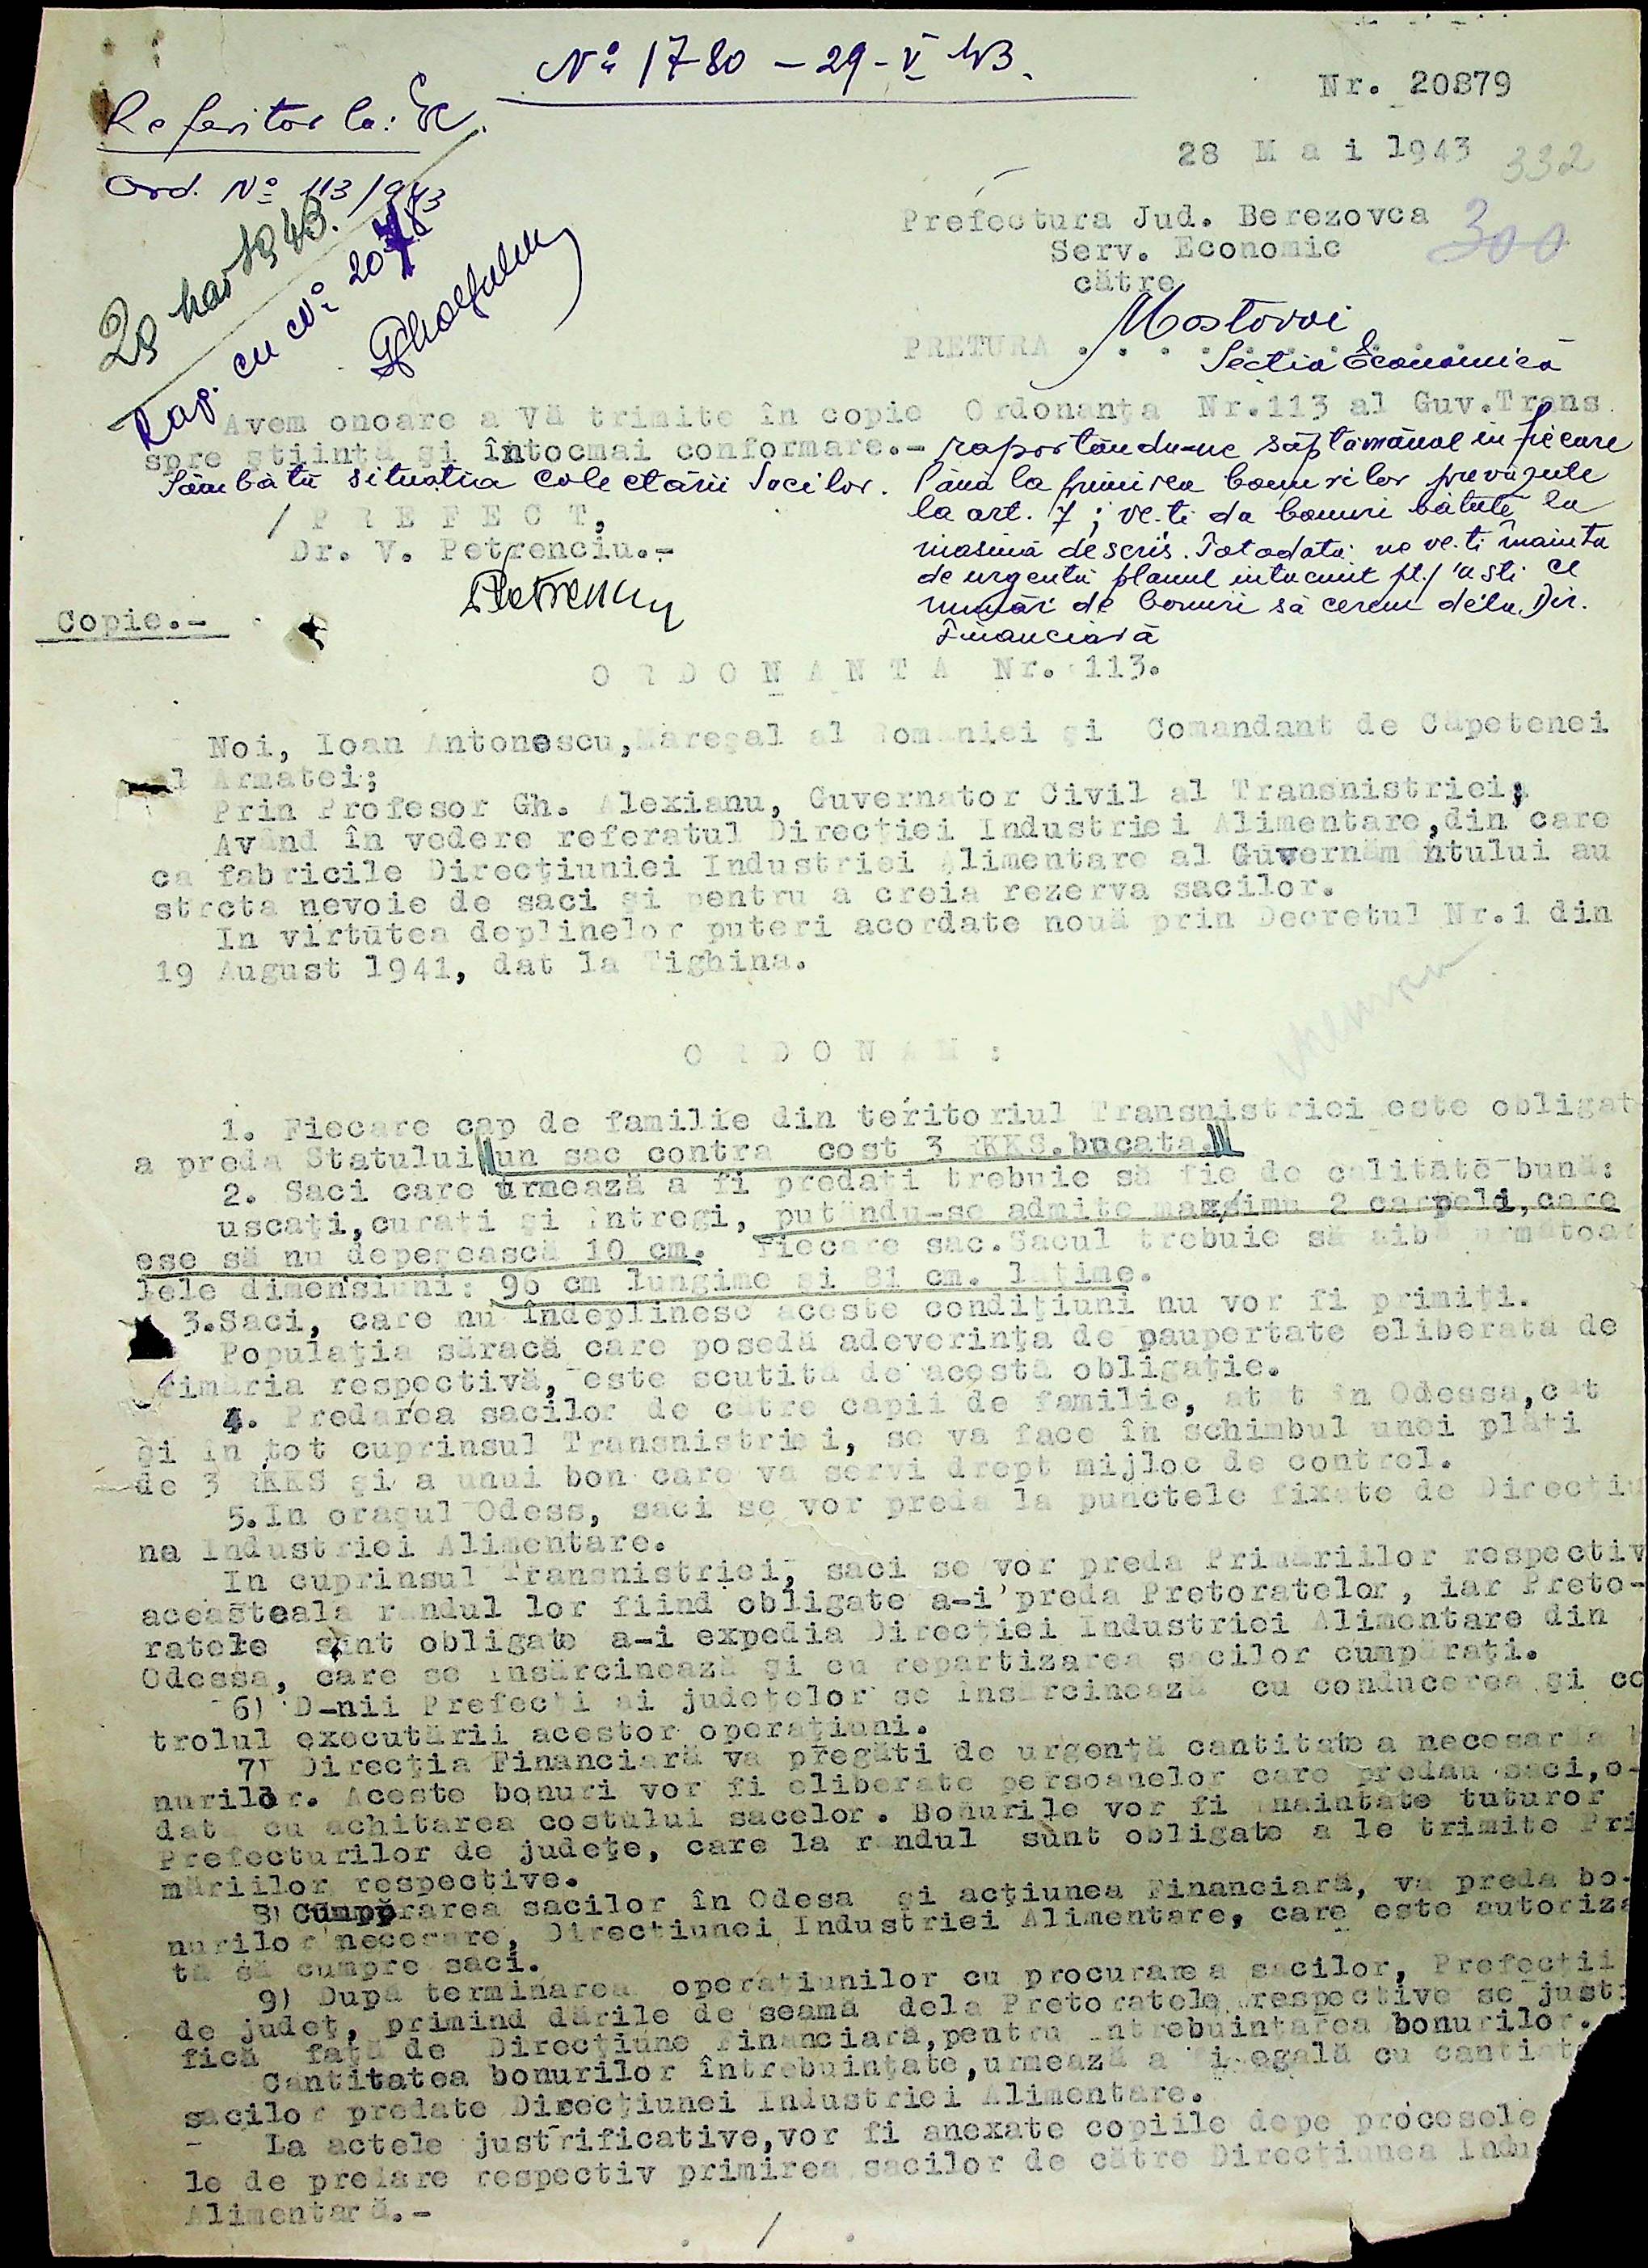 No 1780 – 29-V 43.
Referitor la: Ec.
Ord. No 113/943
Nr. 20879
28 M a i 1943
332
300
Prefectura Jud. Berezovca
Serv. Economic
către
PRETURA . Mostovoi
Sectia Economică
Rap. cu No
Avem onoare a Vă trimite în copie Ordonanţa Nr.113 al Guv.Trans.
spre ştiinţă şi întocmai conformare.- raportându-ne săptămânal in fiecare
Sâmbătă situatia colectării Sacilor. Până la primirea bonurilor prevăzute
la art. 7; ve-ti da bonuri bătute la
masină de scris. Totodată ne ve-ti înainta
de urgentă planul intocmit pt. a sti ce
număr de bonuri să cerem dela Dir.
Financiară
/ P R E F E C T,
Dr. V. Petrenciu.-
Copie.-
O R D O N A N T A Nr. 113.
Noi, Ioan Antonescu,Mareşal al Romaniei şi Comandant de Căpetenei
al Armatei;
Prin Profesor Gh. Alexianu, Guvernator Civil al Transnistriei;
Avănd în vedere referatul Direcţiei Industriei Alimentare,din care
ca fabricile Direcţiuniei Industriei Alimentare al Guvernământului au
strcta nevoie de saci şi pentru a creia rezerva sacilor.
In virtutea deplinelor puteri acordate nouă prin Decretul Nr.1 din
19 August 1941, dat la Tighina.
O R D O N A M :
1. Fiecare cap de familie din teritoriul Transnistriei este obligat
a preda Statului un sac contra cost 3 RKKS.bucata.
2. Saci care urmează a fi predaţi trebuie să fie de calitate bună:
uscaţi,curaţi şi întregi, putându-se admite maxsimu 2 carpeli,care
ese să nu depeşească 10 cm. Fiecare sac.Sacul trebuie să aibă următoar
ţele dimensiuni: 96 cm lungime şi 81 cm. laţime.
3.Saci, care nu îndeplinesc aceste condiţiuni nu vor fi primiţi.
Populaţia săracă care posedă adeverinţa de paupertate eliberată de
Primăria respectivă, este scutită de acestă obligaţie.
4. Predarea sacilor de către capii de familie, atât în Odessa,cât
şi în tot cuprinsul Transnistriei, se va face în schimbul unei plăti
de 3 RKKS şi a unui bon care va servi drept mijloc de control.
5.In oraşul Odess, saci se vor preda la punctele fixate de Direcţiu
na Industriei Alimentare.
In cuprinsul Transnistriei, saci se vor preda Primăriilor respectiv
aceasteala randul lor fiind obligate a-i preda Pretoratelor, iar Preto-
ratele sunt obligate a-i expedia Direcţiei Industriei Alimentare din
Odessa, care se însărcinează şi cu repartizarea sacilor cumpăraţi.
6) D-nii Prefecţi ai judeţelor se însărcinează cu conducerea şi co
trolul executării acestor operaţiuni.
7) Direcţia Financiară va pregăti de urgenţă cantitatea necesarăa b
nurilor. Aceste bonuri vor fi eliberate persoanelor care predau saci,o-
dată cu achitarea costului sacelor. Bonurile vor fi înaintate tuturor
Prefecturilor de judeţe, care la rândul sunt obligate a le trimite Pri
măriilor respective.
8) Cumpărarea sacilor în Odesa şi acţiunea Financiară, va preda bo-
nurilor necesare, Direcţiunei Industriei Alimentare, care este autoriza
tă să cumpre saci.
9) După terminarea operaţiunilor cu procurarea sacilor, Prefecţii
de judeţ, primind dările de seamă dela Pretoratele respective se justi
fică faţă de Direcţiune Financiară,pentru întrebuinţarea bonurilor.
Cantitatea bonurilor întrebuinţate,urmează a fi egală cu cantiat
sacilor predate Direcţiunei Industriei Alimentare.
- La actele justrificative,vor fi anexate copiile depe procesele
le de preiare respectiv primirea sacilor de către Direcţiunea Indu
Alimentară.-
. / .